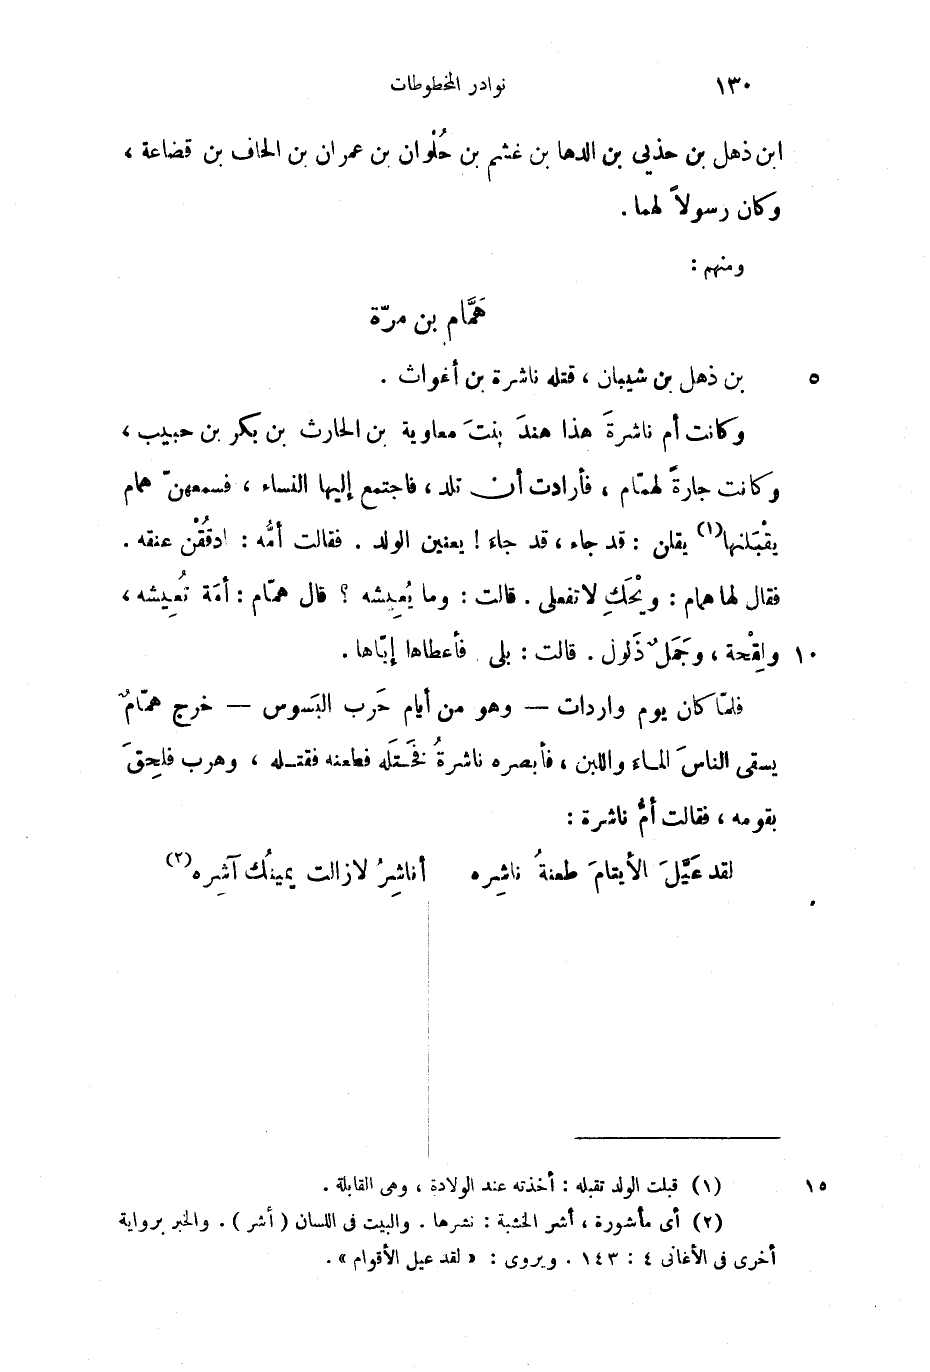 ١٣٠ نوادر المخطوطات
ابن ذهل بن حذلى بن الدها بن غشم بن حُلْوان بن عمران بن الحاف بن قضاعة ،
وكان رسولاً لهما .
ومنهم :
هَمَّام بن مرّة
بن ذهل بن شيبان ، قتله ناشرة بن أغواث . ٥
وكانت أم ناشرةَ هذا هندَ بنتَ معاوية بن الحارث بن بكر بن حبيب ،
وكانت جارةً لهمّام ، فأرادت أن تلد ، فاجتمع إليها النساء ، فسمعهنّ همام
يقْبَلنها(١) يقلن : قد جاء ، قد جاء ! يعنين الولد . فقالت أمُّه : ادقُقْن عنقه .
فقال لها همام : ويْحَكِ لا تفعلى . قالت : وما يُعِيشه ؟ قال همّام : أمَة تُعِيشه ،
ولِقْحة ، وجَمَلٌ ذَلول . قالت : بلى فأعطاها إيّاها . ١٠
فلمّا كان يوم واردات — وهو من أيام حَرب البَسوس — خرج همّامٌ
يسقى الناسَ الماء واللبن ، فأبصره ناشرةُ فَخَتَله فطعنه فقتله ، وهرب فلحِقَ
بقومه ، فقالت أمُّ ناشرة :
لقد عَيَّلَ الأيتامَ طعنةُ ناشِره أناشِرُ لازالت يمينُك آشِره(٢)
(١) قبلت الولد تقبله : أخذته عند الولادة ، وهى القابلة . ١٥
(٢) أى مأشورة ، أشر الخشبة : نشرها . والبيت فى اللسان ( أشر ) . والخبر برواية
أخرى فى الأغانى ٤ : ١٤٣ . ويروى : « لقد عيل الأقوام » .